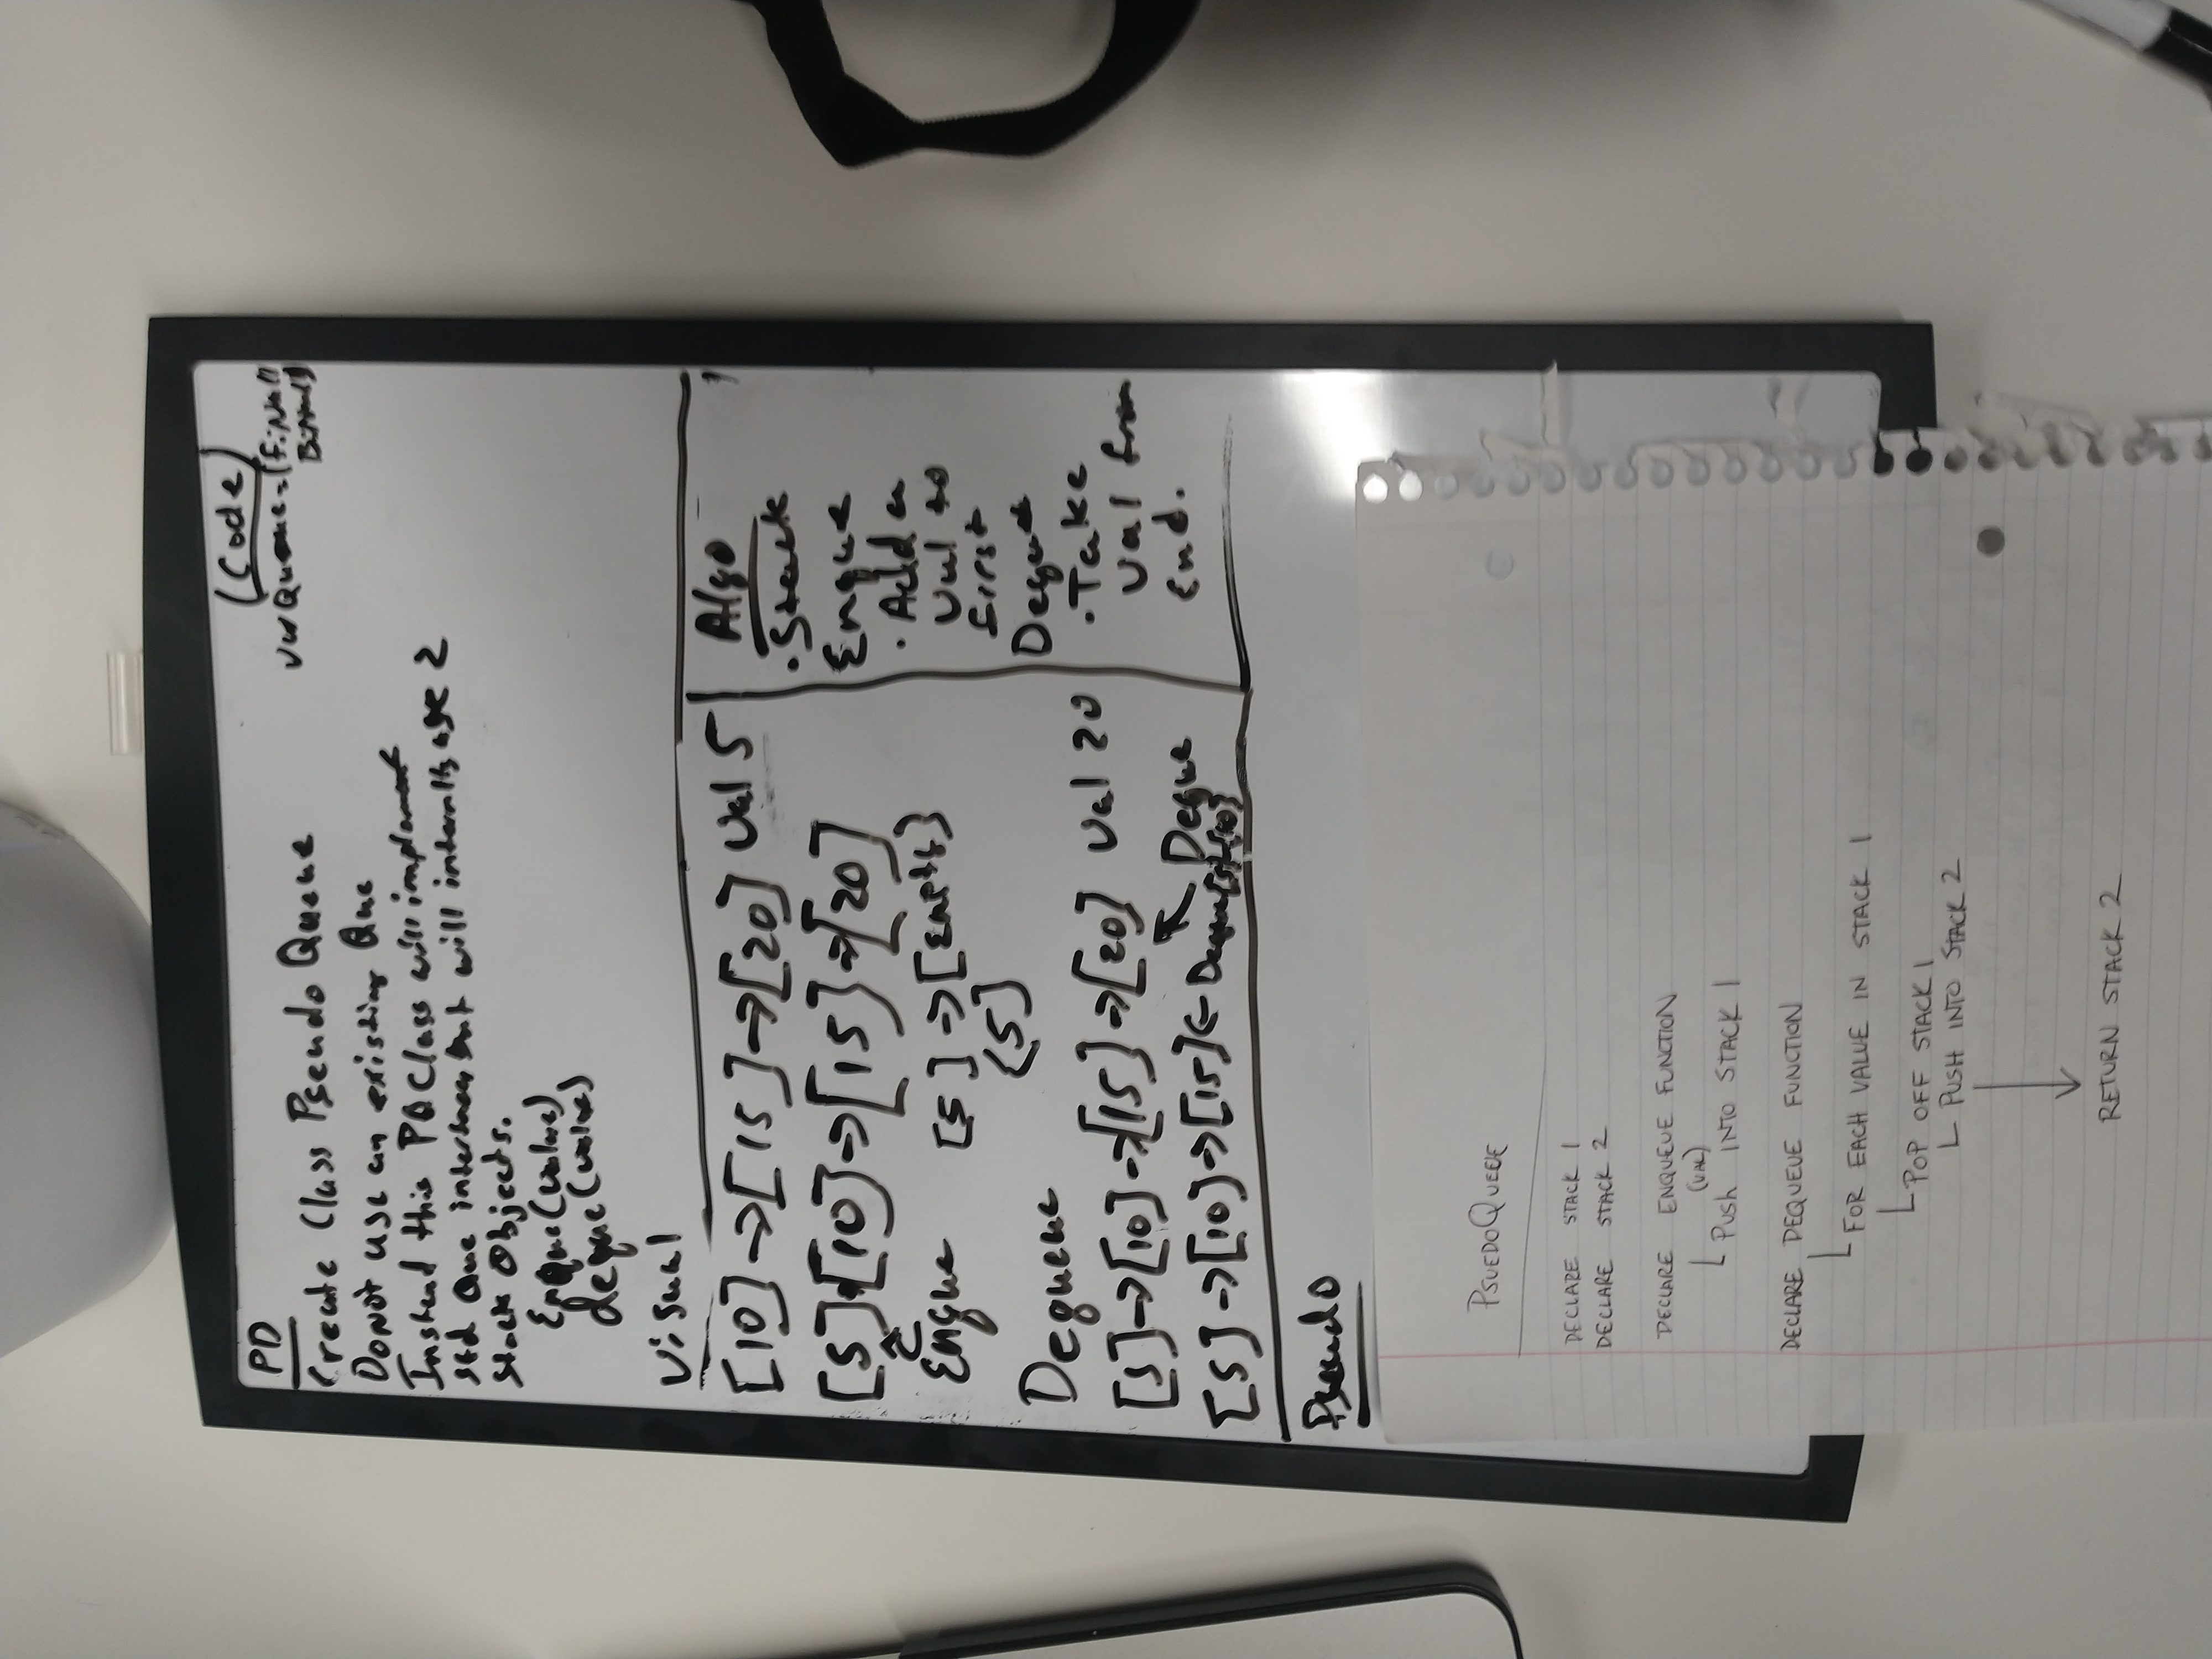 PD
Create Class Pseudo Queue
Do not use an existing Que
Instead this PQ Class will implement
std Que interface but will internally use 2
stack objects.
Enque(value)
deque(value)
(Code)
Visual
[10] -> [15] -> [20] val 5
[5] [10] -> [15] -> [20]
Enque [5] -> [Empty]
[5]
Dequeue
[5] -> [10] -> [15] -> [20] val 20
Deque
[5] -> [10] -> [15] <-
Algo
.Stack
Enque
. Add a
val to
first
Deque
.Take
val from
End.
Pseudo
PSUEDOQUEUE
DECLARE STACK 1
DECLARE STACK 2
DECLARE ENQUEUE FUNCTION
(VAL)
PUSH INTO STACK 1
DECLARE DEQUEUE FUNCTION
FOR EACH VALUE IN STACK 1
POP OFF STACK 1
PUSH INTO STACK 2
RETURN STACK 2